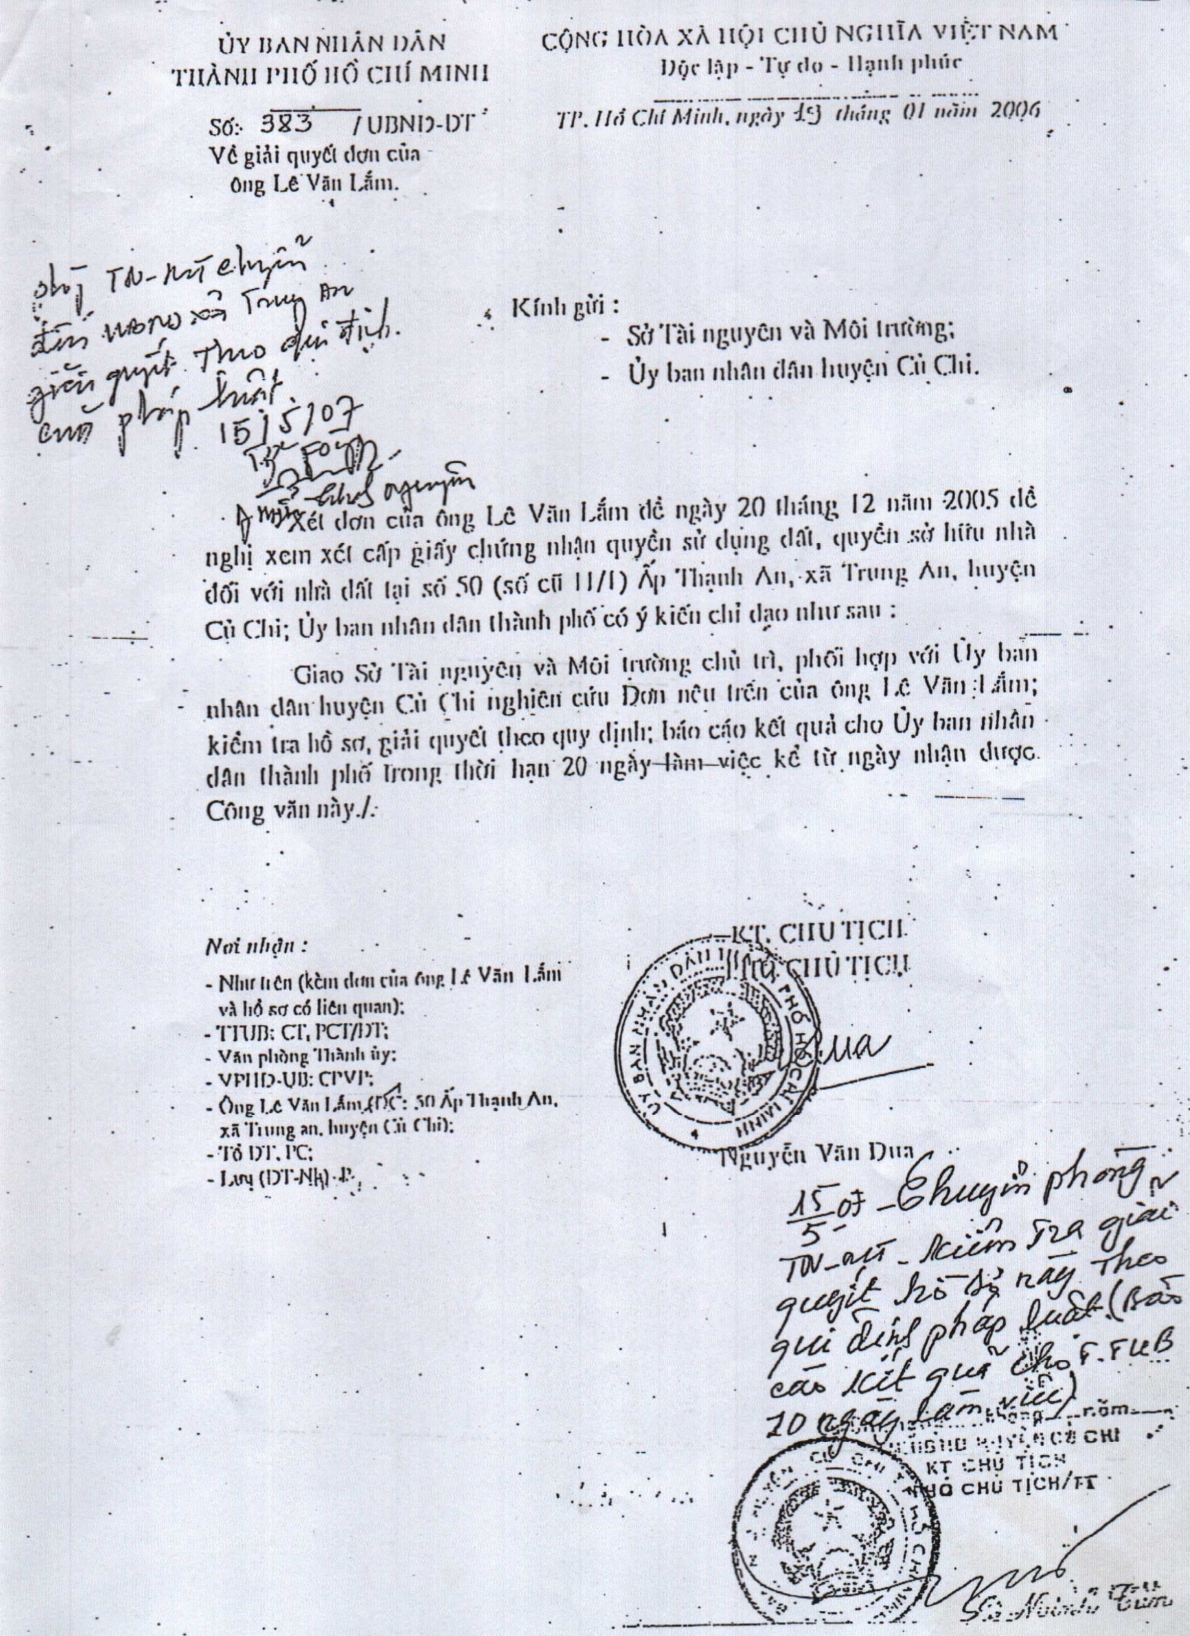 ỦY BAN NHÂN DÂN
THÀNH PHỐ HỒ CHÍ MINH
CỘNG HÒA XÃ HỘI CHỦ NGHĨA VIỆT NAM
Độc lập - Tự do - Hạnh phúc
Số: 383 /UBND-ĐT
TP. Hồ Chí Minh, ngày 19 tháng 01 năm 2006
Về giải quyết đơn của
ông Lê Văn Lắm.
TN-MT chuyển
đến UBND xã Trung An
giải quyết theo qui định
của pháp luật
15/5/07
Kính gửi :
- Sở Tài nguyên và Môi trường;
- Ủy ban nhân dân huyện Củ Chi.
Xét đơn của ông Lê Văn Lắm đề ngày 20 tháng 12 năm 2005 đề
nghị xem xét cấp giấy chứng nhận quyền sử dụng đất, quyền sở hữu nhà
đối với nhà đất tại số 50 (số cũ 11/1) Ấp Thạnh An, xã Trung An, huyện
Củ Chi; Ủy ban nhân dân thành phố có ý kiến chỉ đạo như sau :
Giao Sở Tài nguyên và Môi trường chủ trì, phối hợp với Ủy ban
nhân dân huyện Củ Chi nghiên cứu Đơn nêu trên của ông Lê Văn Lắm;
kiểm tra hồ sơ, giải quyết theo quy định; báo cáo kết quả cho Ủy ban nhân
dân thành phố trong thời hạn 20 ngày làm việc kể từ ngày nhận được
Công văn này./.
Nơi nhận :
- Như trên (kèm đơn của ông Lê Văn Lắm
và hồ sơ có liên quan);
- TTUB: CT, PCT/ĐT;
- Văn phòng Thành ủy;
- VPHĐ-UB: CPVP;
- Ông Lê Văn Lắm (ĐC: 50 Ấp Thạnh An,
xã Trung an, huyện Củ Chi);
- Tổ ĐT, PC;
- Lưu (ĐT-Nh)
KT. CHỦ TỊCH
PHÓ CHỦ TỊCH
ỦY BAN NHÂN DÂN THÀNH PHỐ HỒ CHÍ MINH
Nguyễn Văn Đua
15/5 07 - Chuyển phòng
TN-MT - Kiểm tra giải
quyết hồ sơ này theo
qui định pháp luật. (Báo
cáo kết quả cho T.TUB
10 ngày làm việc)
năm
UBND HUYỆN CỦ CHI
KT CHỦ TỊCH
PHÓ CHỦ TỊCH/TT